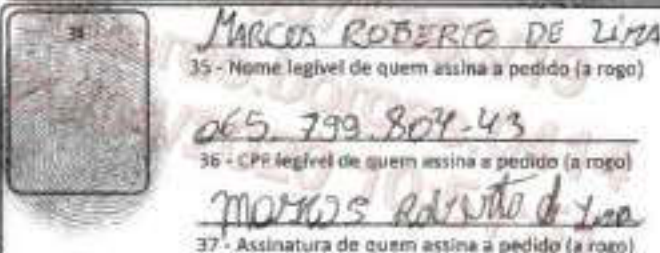 34
MARCOS ROBERTO DE LIMA
35 - Nome legível de quem assina a pedido (a rogo)
065.799.804-43
36 - CPF legível de quem assina a pedido (a rogo)
Marcos Roberto de Lima
37 - Assinatura de quem assina a pedido (a rogo)